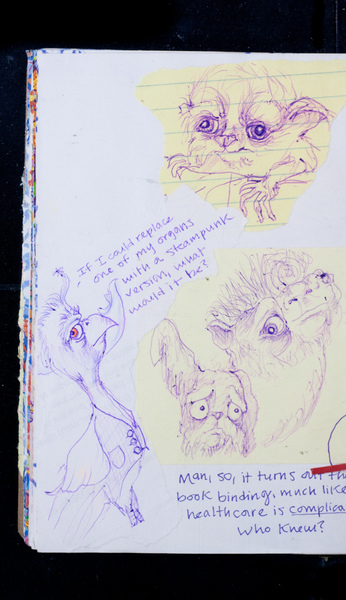 If I could replace
one of my organs
with a steampunk
version, what
would it be?
Man, so, it turns out th
book binding, much like
healthcare is complica
Who Knew?